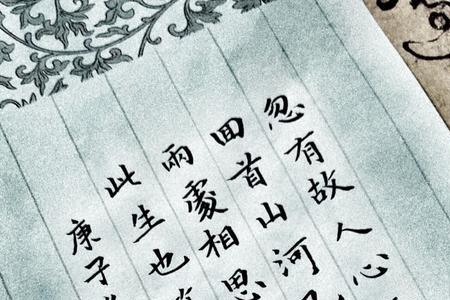 忽有故人心
回首山河
兩處相思
此生也
庚子